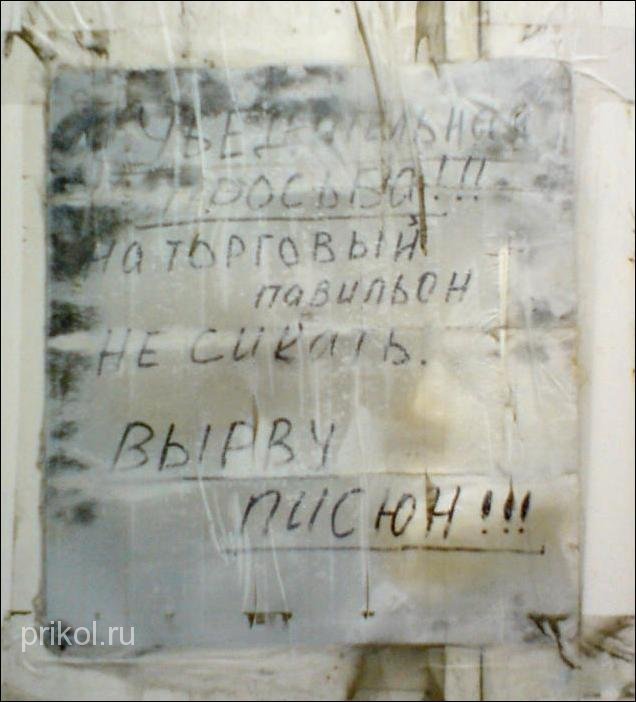 УБЕДИТЕЛЬНАЯ
ПРОСЬБА!!!
НА ТОРГОВЫЙ
ПАВИЛЬОН
НЕ СИКАТЬ.
ВЫРВУ
ПИСЮН!!!
prikol.ru